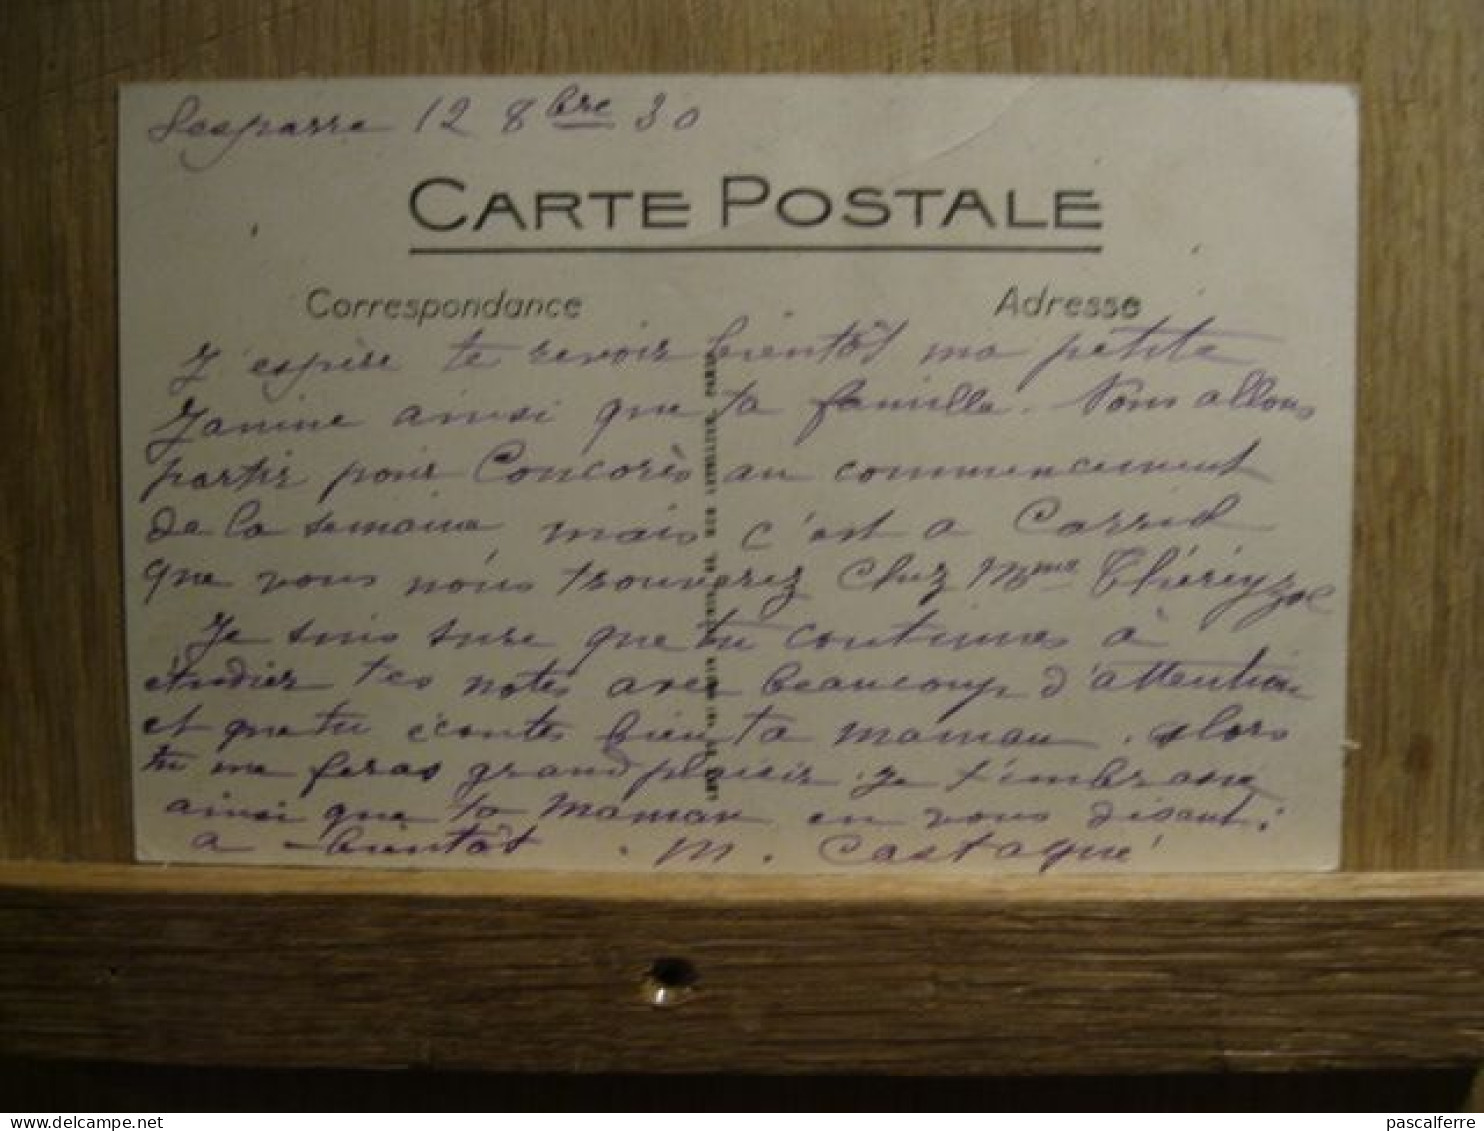 Lesparre 12 8bre 30
CARTE POSTALE
Correspondance Adresse
J'espère te revoir bientôt ma petite
Janine ainsi que ta famille. Nous allons
partir pour Concorès au commencement
de la semaine mais c'est a
que vous nous trouverez chez Mme
Je suis sure que tu continues à
étudier tes notes avec beaucoup d'attention
et que tu écoutes bien ta maman. Alors
tu me feras grand plaisir. Je t'embrasse
ainsi que ta maman en vous disant:
a bientôt. M. Castagné
pascalferre